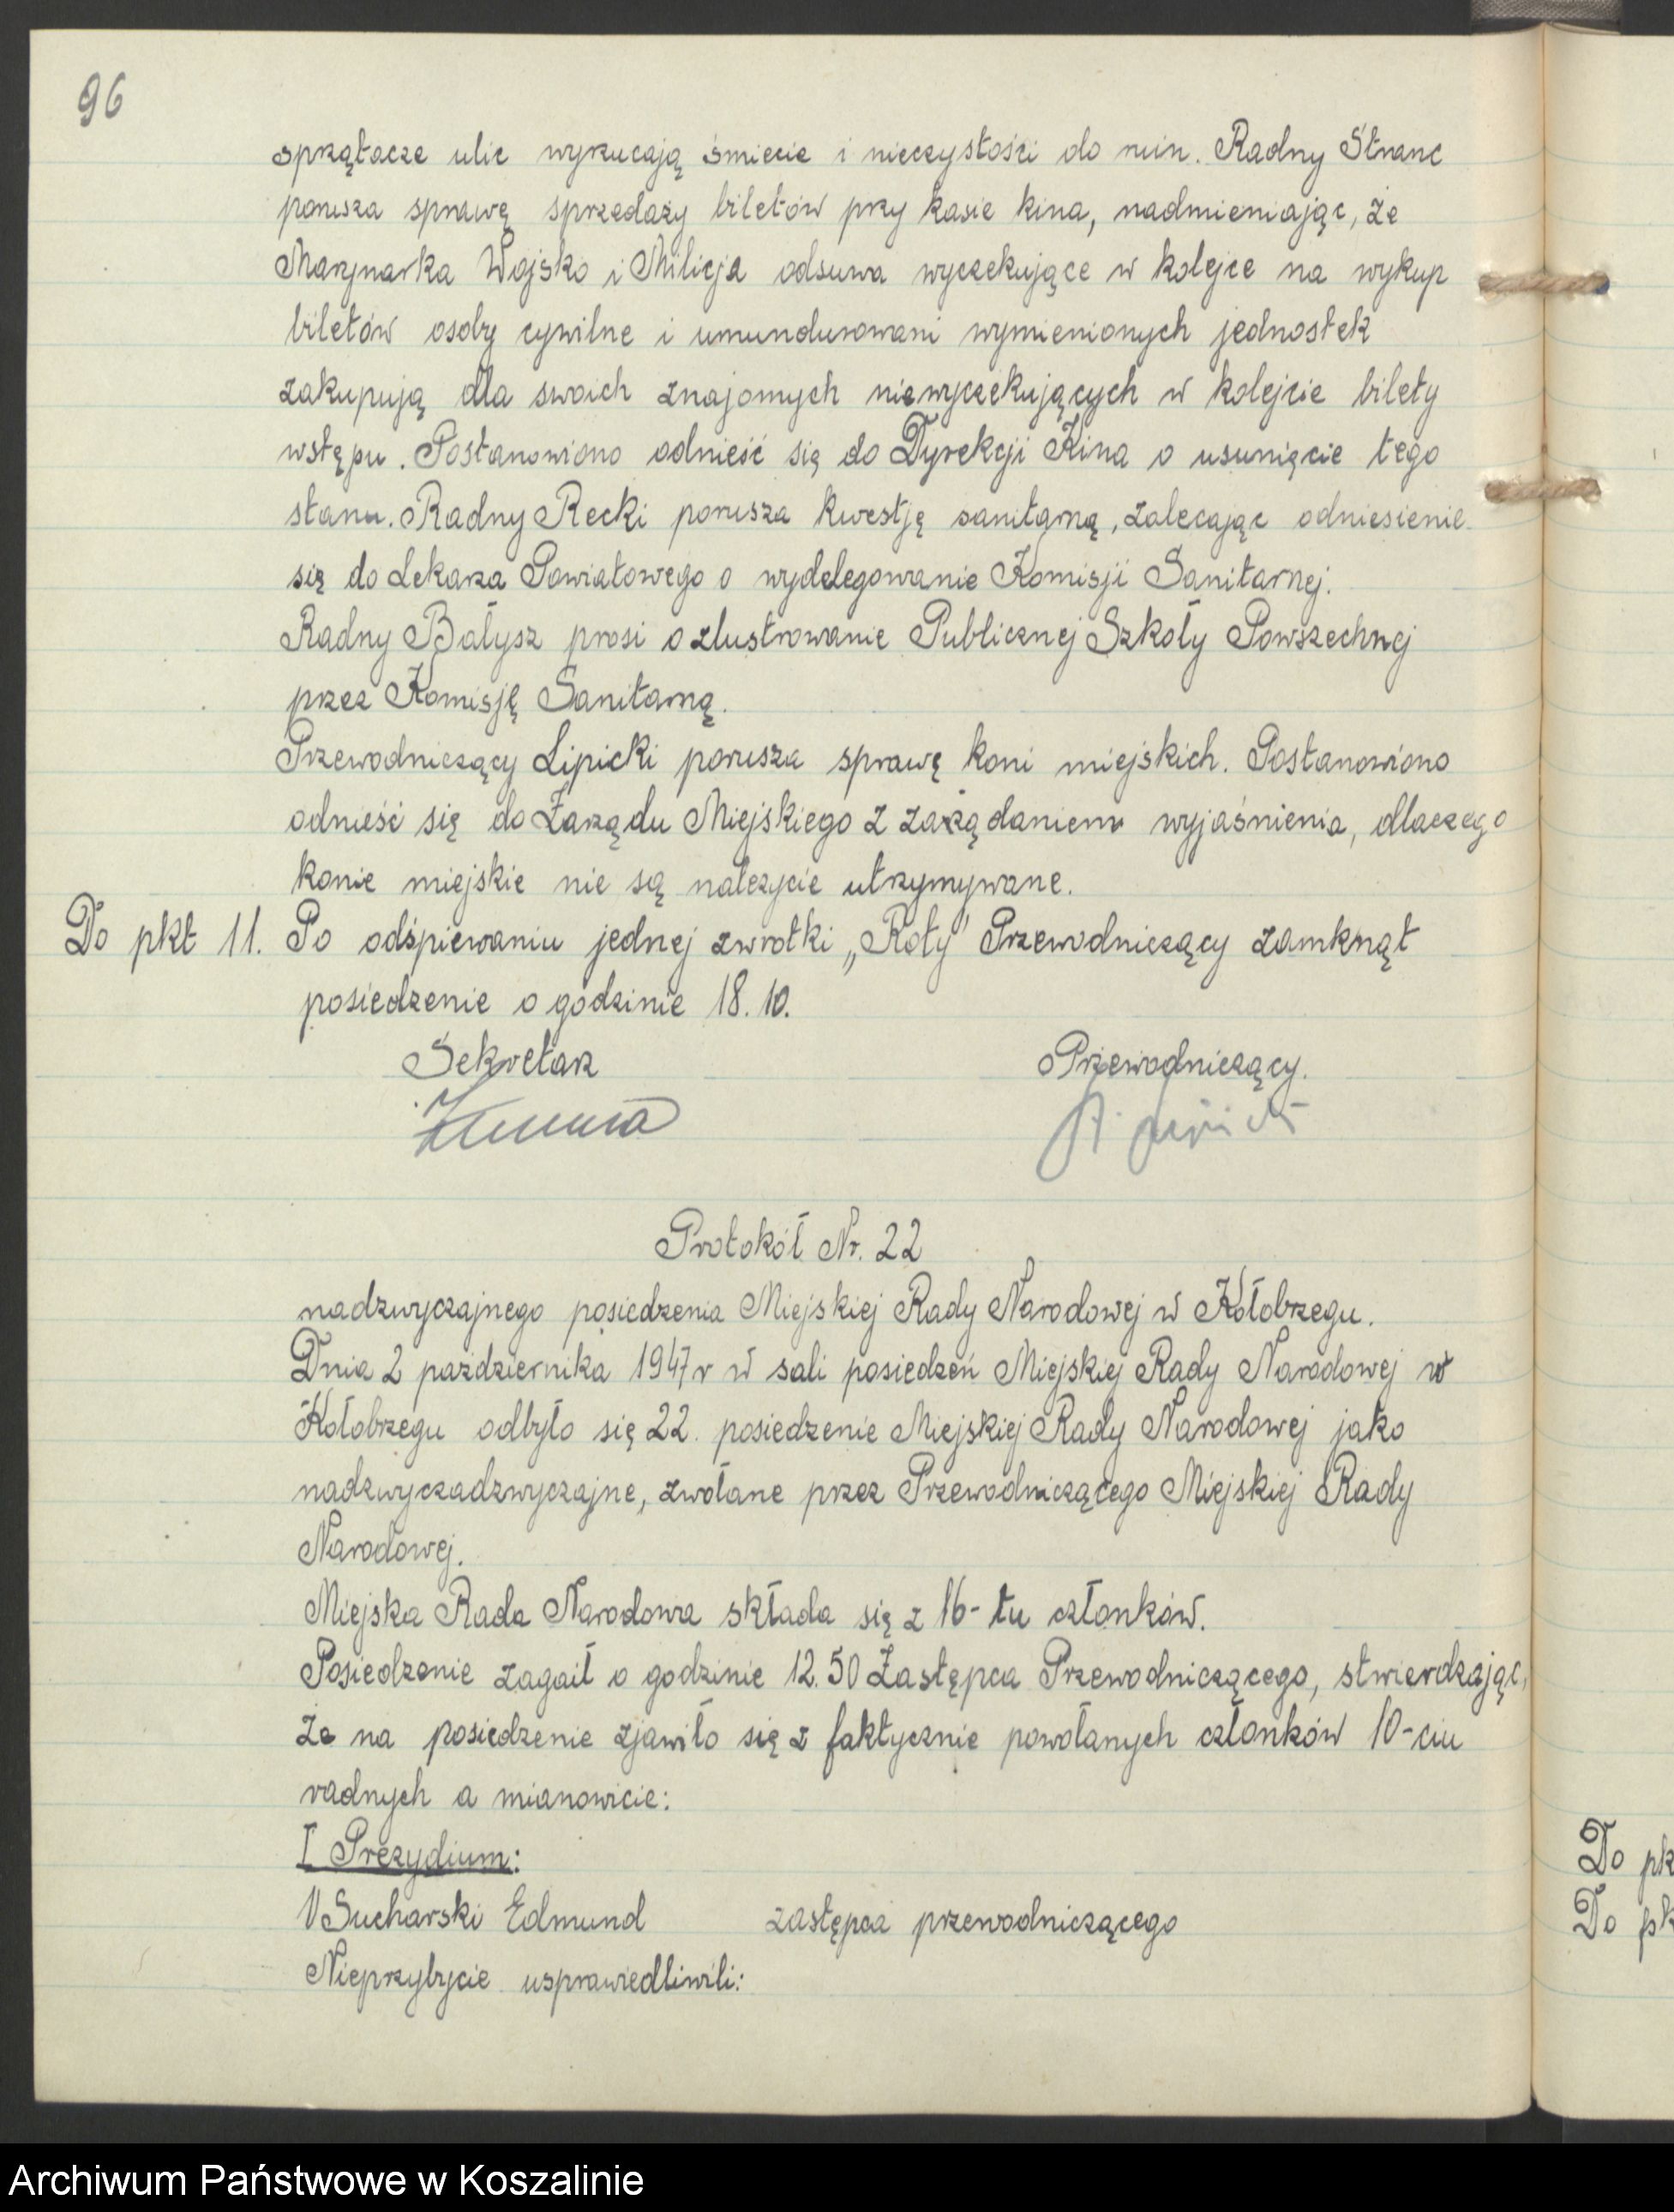 96
sprzątacze ulic wyrzucają śmiecie i nieczystości do ruin. Radny Stranc
porusza sprawę sprzedaży biletów przy kasie kina, nadmieniając, że
Marynarka Wojsko i Milicja odsuwa wyczekujące w kolejce na wykup
biletów osoby cywilne i umundurowani wymienionych jednostek
zakupują dla swoich znajomych niewyczekujących w kolejcie bilety
wstępu. Postanowiono odnieść się do Dyrekcji Kina o usunięcie tego
stanu. Radny Recki porusza kwestję sanitarną, zalecając odniesienie
się do Lekarza Powiatowego o wydelegowanie Komisji Sanitarnej.
Radny Bałysz prosi o zlustrowanie Publicznej Szkoły Powszechnej
przez Komisję Sanitarną.
Przewodniczący Lipicki porusza sprawę koni miejskich. Postanowiono
odnieść się do Zarządu Miejskiego z zarządaniem wyjaśnienia, dlaczego
konie miejskie nie są należycie utrzymywane.
Do pkt 11. Po odśpiewaniu jednej zwrotki „Roty" Przewodniczący zamknął
posiedzenie o godzinie 18.10.
Sekretarz Przewodniczący.
Protokół Nr. 22
nadzwyczajnego posiedzenia Miejskiej Rady Narodowej w Kołobrzegu.
Dnia 2 października 1947 r w sali posiedzeń Miejskiej Rady Narodowej w
Kołobrzegu odbyło się 22. posiedzenie Miejskiej Rady Narodowej jako
nadzwyczadzwyczajne, zwołane przez Przewodniczącego Miejskiej Rady
Narodowej.
Miejska Rada Narodowa składa się z 16-tu członków.
Posiedzenie zagaił o godzinie 12.50 Zastępca Przewodniczącego, stwierdzając,
że na posiedzenie zjawiło się z faktycznie powołanych członków 10-ciu
radnych a mianowicie:
I Prezydium:
1/ Sucharski Edmund zastępca przewodniczącego
Nieprzybycie usprawiedliwili:
Do pk
Do pk
Archiwum Państwowe w Koszalinie